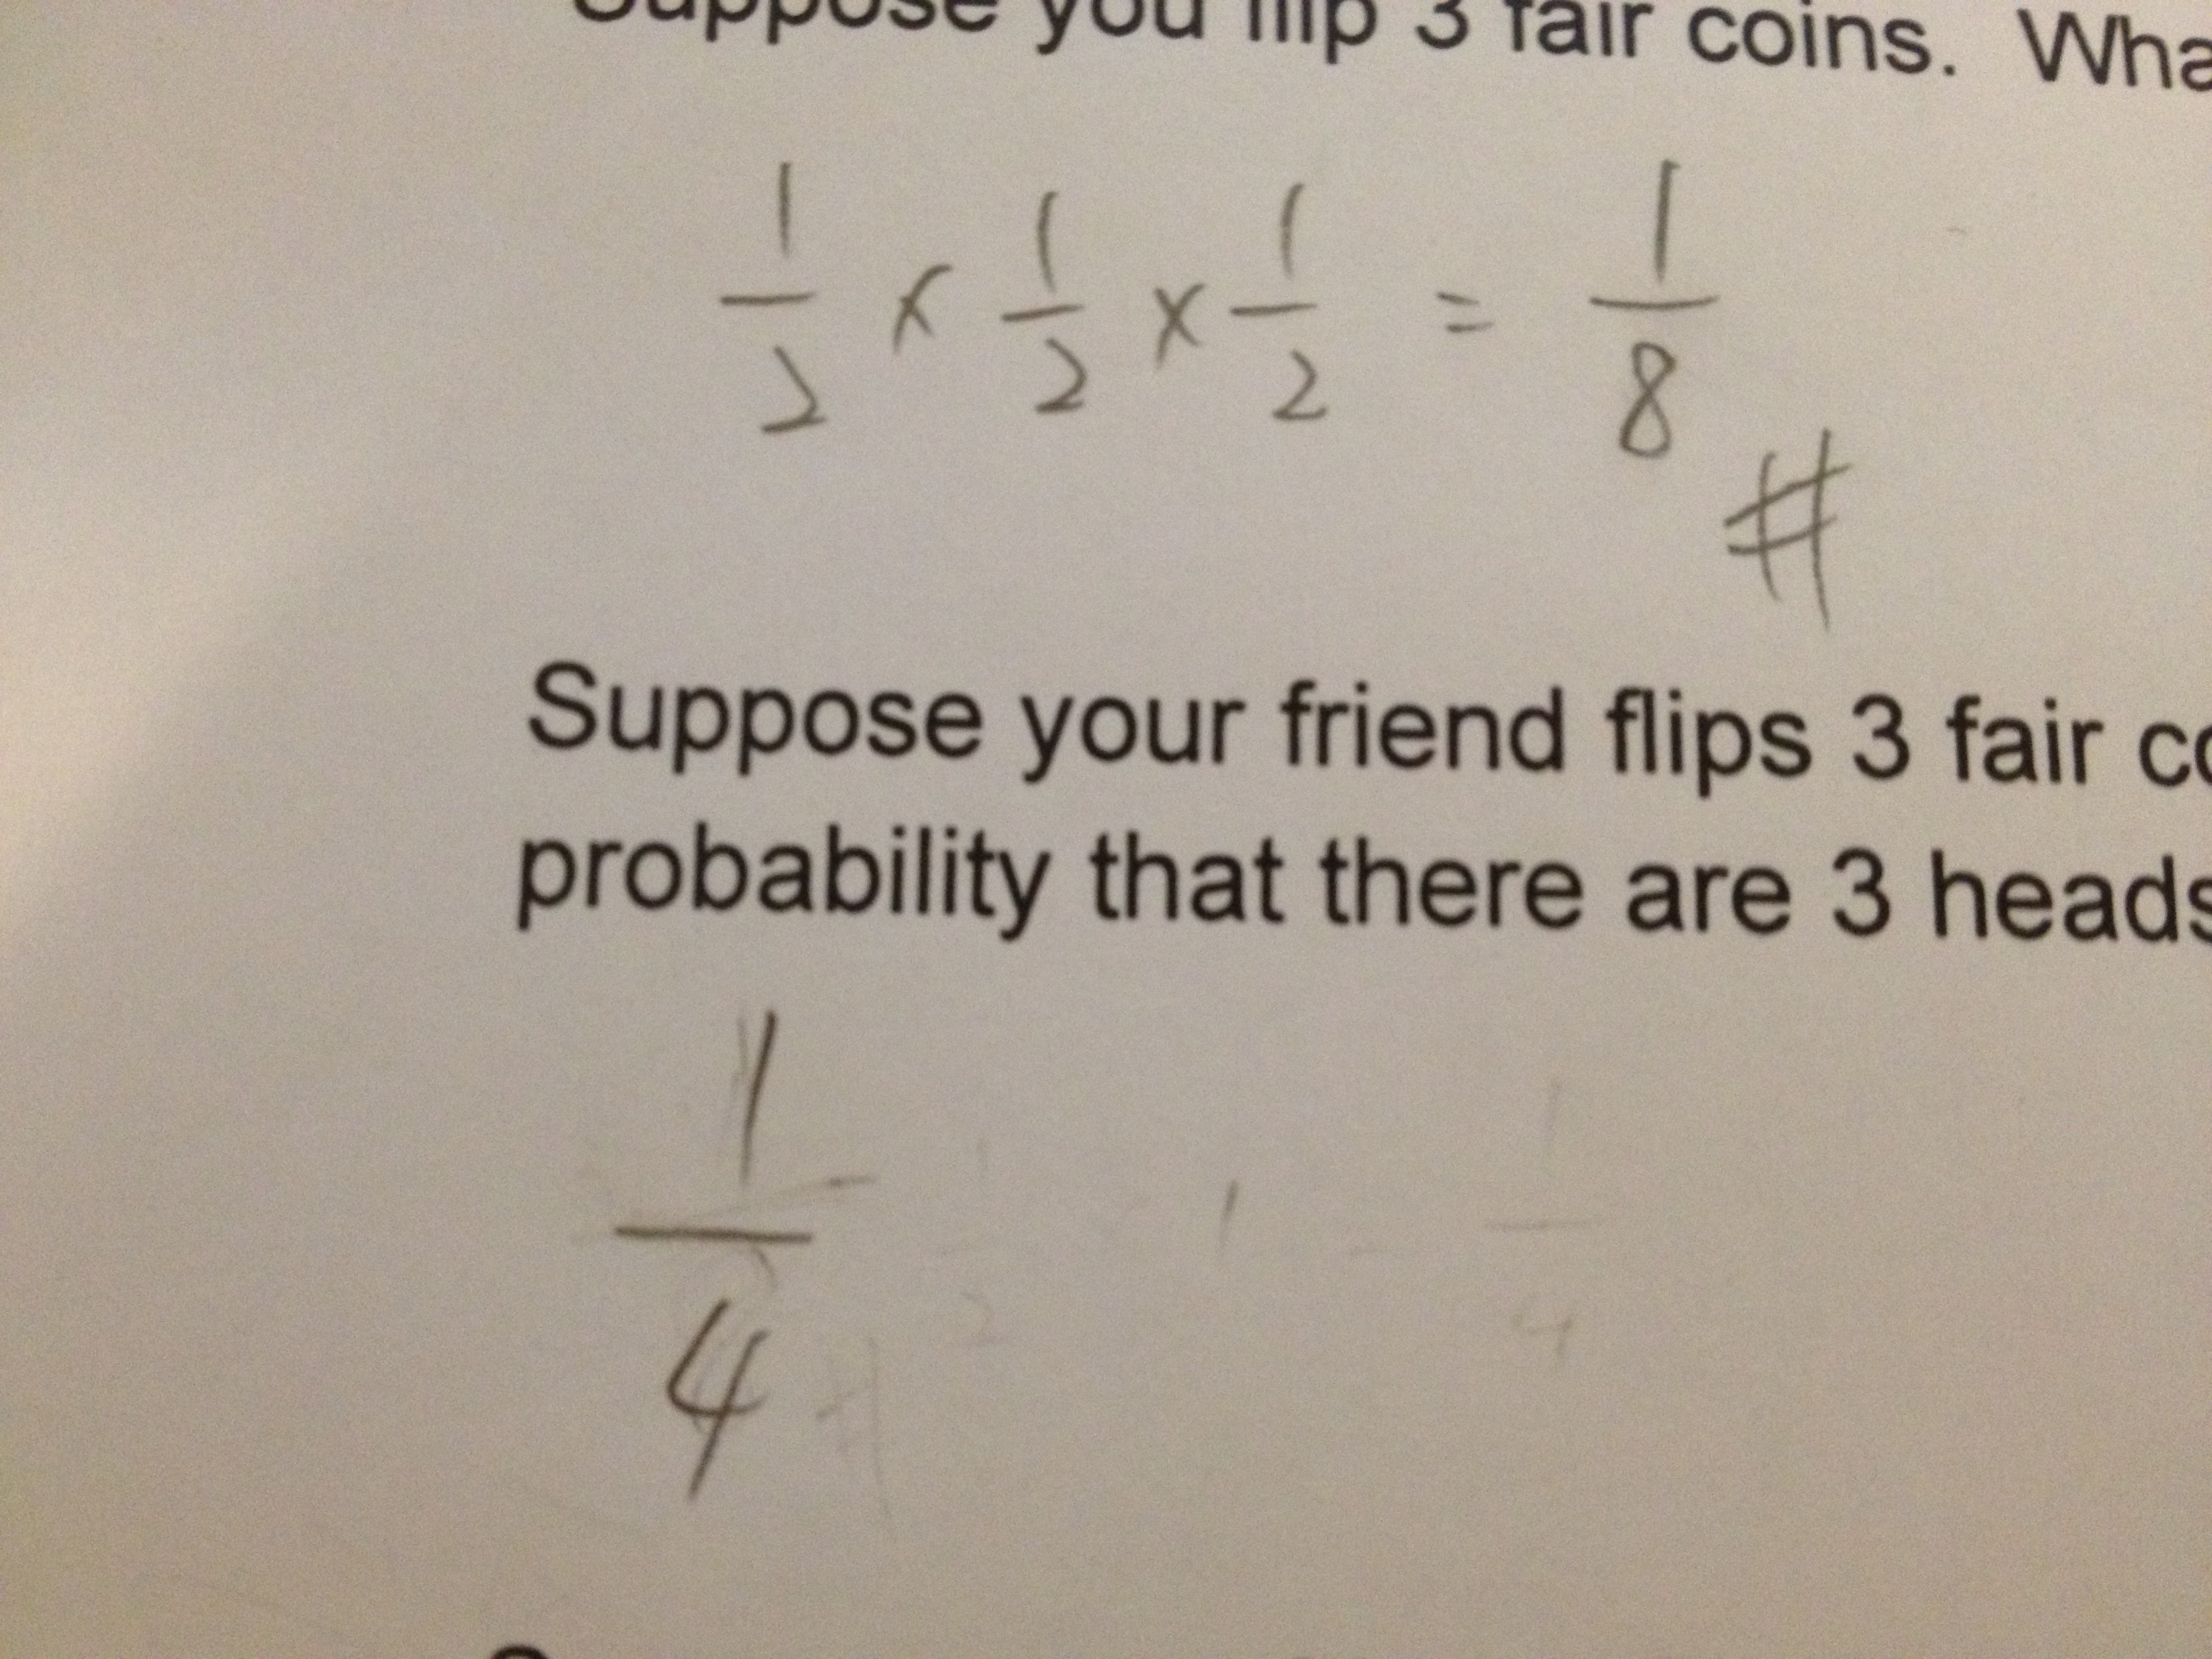 Suppose you flip 3 fair coins. Wha
1/2 x 1/2 x 1/2 = 1/8
#
Suppose your friend flips 3 fair co
probability that there are 3 heads
1/4